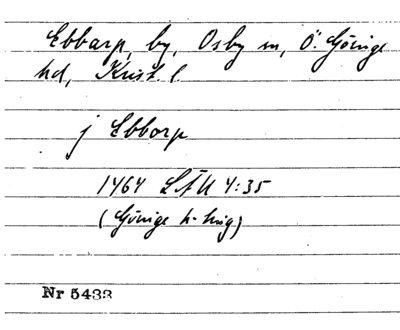 Ebbarp, by, Osby sn, Ö. Göinge
hd, Krist. l
j Ebborp
1464 LÅU 4:35
(Göinge h-ting)
Nr 5433